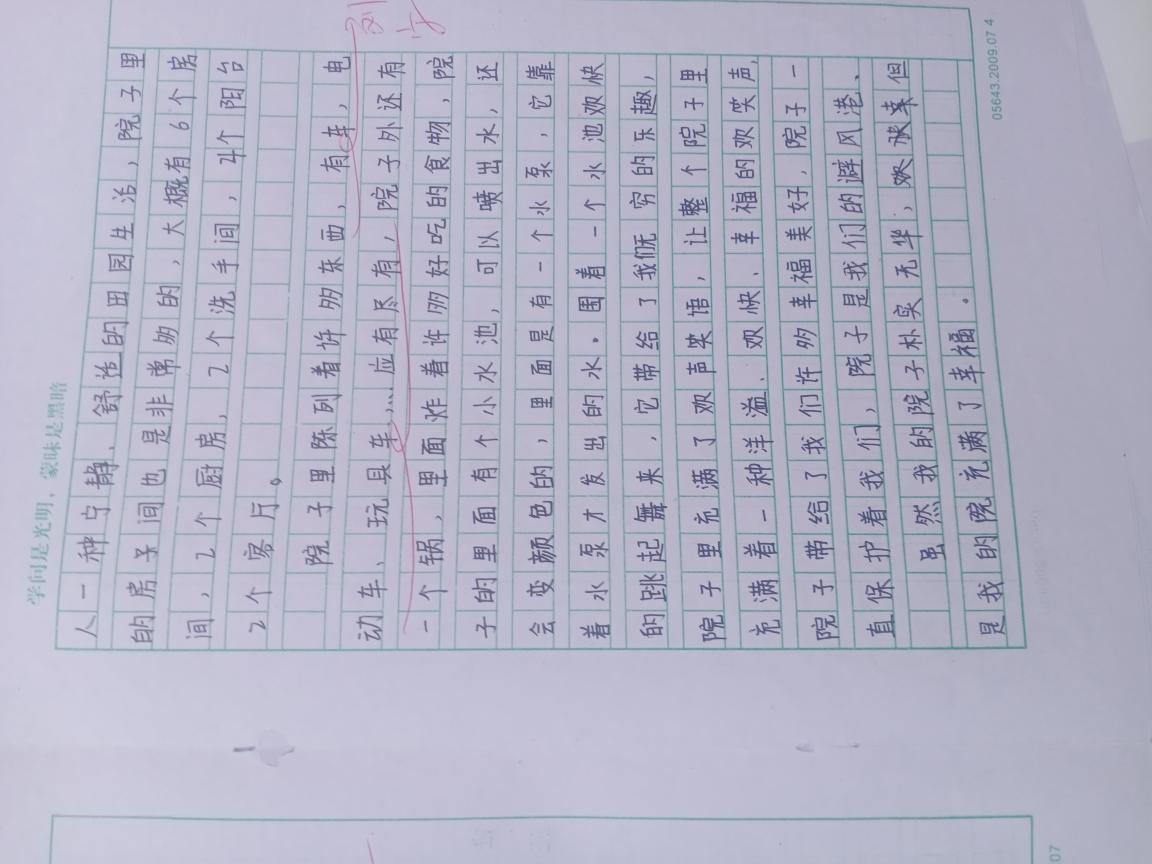 学问是光明，蒙昧是黑暗
人一种宁静、舒适的田园生活，院子里
的房子间也是非常多的，大概有6个房
间，2个厨房，2个洗手间，4个阳台
2个客厅。
院子里陈列着许多东西，有车，电
动车、玩具车……应有尽有，院子外还有
一个锅，里面炸着许多好吃的食物，院
子的里面有个小水池，可以喷出水，还
会变颜色的，里面是有一个水泵，它靠
着水泵才发出的水。围着一个水池欢快
的跳起舞来，它带给了我们无穷的乐趣，
院子里充满了欢声笑语，让整个院子里
充满着一种洋溢、欢快、幸福的欢笑声，
院子带给了我们许多幸福美好，院子一
直保护着我们，院子是我们的避风港、
虽然我的院子朴实无华，欢但
是我的院充满了幸福。
05643.2009.07 4
07